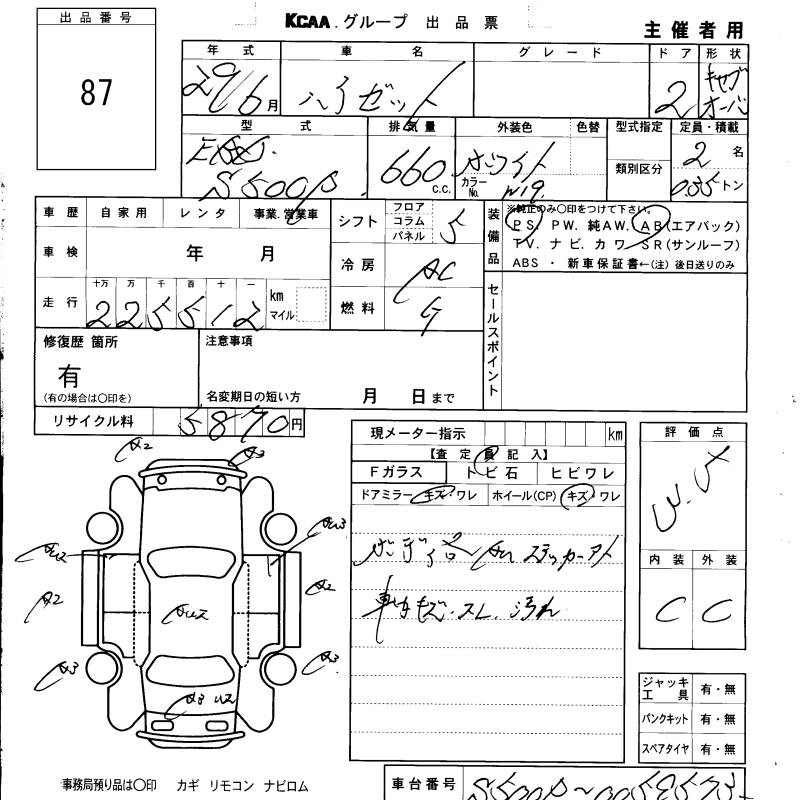 出品番号
87
KCAA.グループ 出品票
主催者用
年式 車名 グレード ドア 形状
29/6月 ハイゼット 2 キャブオーバ
型式 排気量 外装色 色替 型式指定 定員・積載
S500P 660 c.c. ホワイト 類別区分 2名
カラーNo. W19 0.35トン
車歴 自家用 レンタ 事業.営業車 シフト フロア コラム パネル 5
装備品
※純正のみ○印をつけて下さい。
PS. PW. 純AW. AB(エアバック)
TV. ナビ. カワ. SR(サンルーフ)
ABS ・ 新車保証書←(注)後日送りのみ
車検 年 月 冷房 AC
走行 十万 万 千 百 十 一 km マイル 燃料 G
225512
セールスポイント
修復歴 箇所 注意事項
有
(有の場合は○印を) 名変期日の短い方 月 日まで
リサイクル料 5870円
現メーター指示 km
【査定員記入】
Fガラス トビ石 ヒビワレ
ドアミラー キズ・ワレ ホイール(CP) キズ・ワレ
AU ステッカーアト
車内キズ・スレ・汚れ
評価点
3.5
内装 外装
C C
A2 A3
AU2 AU3
A2 A2
AUス
A3 A3
A3 Uス
ジャッキ工具 有・無
パンクキット 有・無
スペアタイヤ 有・無
事務局預り品は○印 カギ リモコン ナビロム
車台番号 S500P-0058573